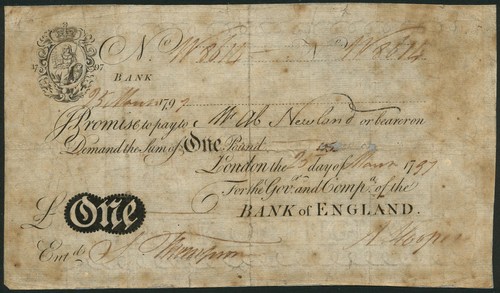 No. No.
17 97
BANK
1797
I Promise to pay to Mr Ab Newland or bearer on
Demand the Sum of One Pound
London the day of 1797
For the Govr. and Compa. of the
£ One BANK of ENGLAND.
Entd. J. Thompson